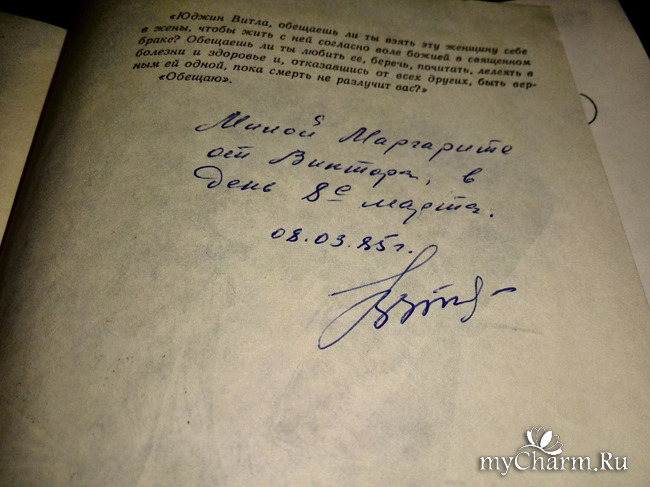 «Юджин Витла, обещаешь ли ты взять эту женщину себе
в жены, чтобы жить с ней согласно воле божией в священном
браке? Обещаешь ли ты любить ее, беречь, почитать, лелеять в
болезни и здоровье и, отказавшись от всех других, быть вер-
ным ей одной, пока смерть не разлучит вас?»
«Обещаю».
Милой Маргарите
от Виктора, в
день 8е марта.
08.03.85г.
myCharm.Ru